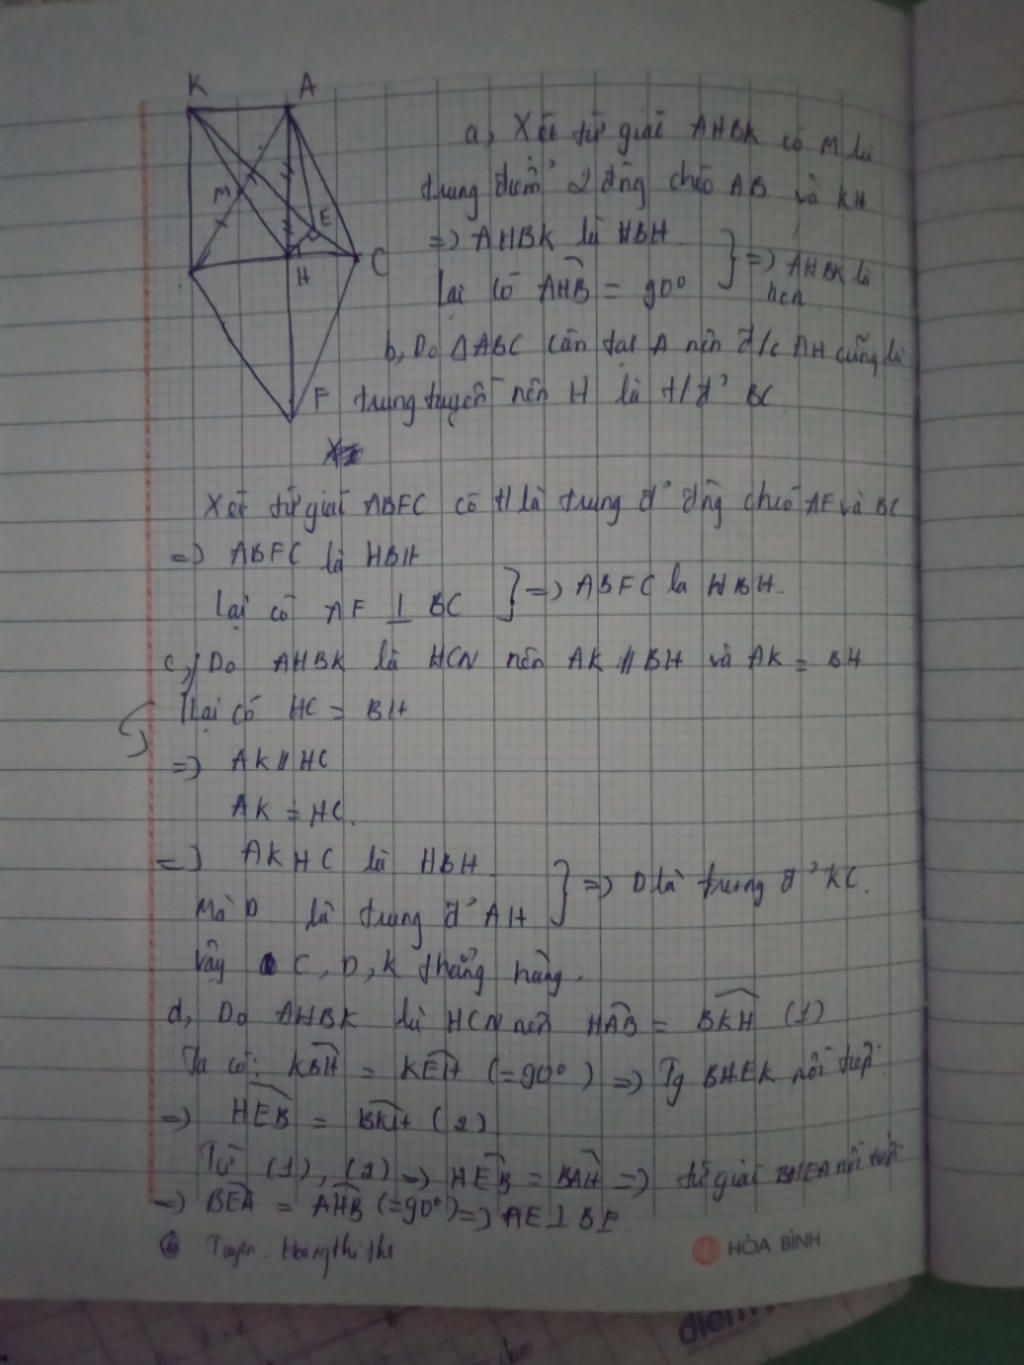 K A
M
E
H C
F
a, Xét tứ giác AHBK có M là
trung điểm 2 đg chéo AB và KH
=> AHBK là HBH
Lại có AHB = 90° } => AHBK là hcn
b, Do ΔABC cân tại A nên đ/c AH cũng là
trung tuyến nên H là t/đ' BC
Xét tứ giác ABFC có H là trung đ' đg chéo AF và BC
=> ABFC là HBH
Lại có AF ⊥ BC } => ABFC là HBH.
c, Do AHBK là HCN nên AK // BH và AK = BH
Lại có HC = BH
=> AK // HC
AK = HC.
=> AKHC là HBH
Mà D là trung đ' AH } => D là trung đ' KC.
Vậy C, D, K thẳng hàng.
d, Do AHBK là HCN nên HAB = BKH (1)
Ta có: KBH = KEH (=90°) => Tg BHEK nội tiếp.
=> HEB = BKH (2)
Từ (1), (2) => HEB = BAH => tứ giác BHEA nội tiếp
=> BEA = AHB (=90°) => AE ⊥ BE
HÒA BÌNH